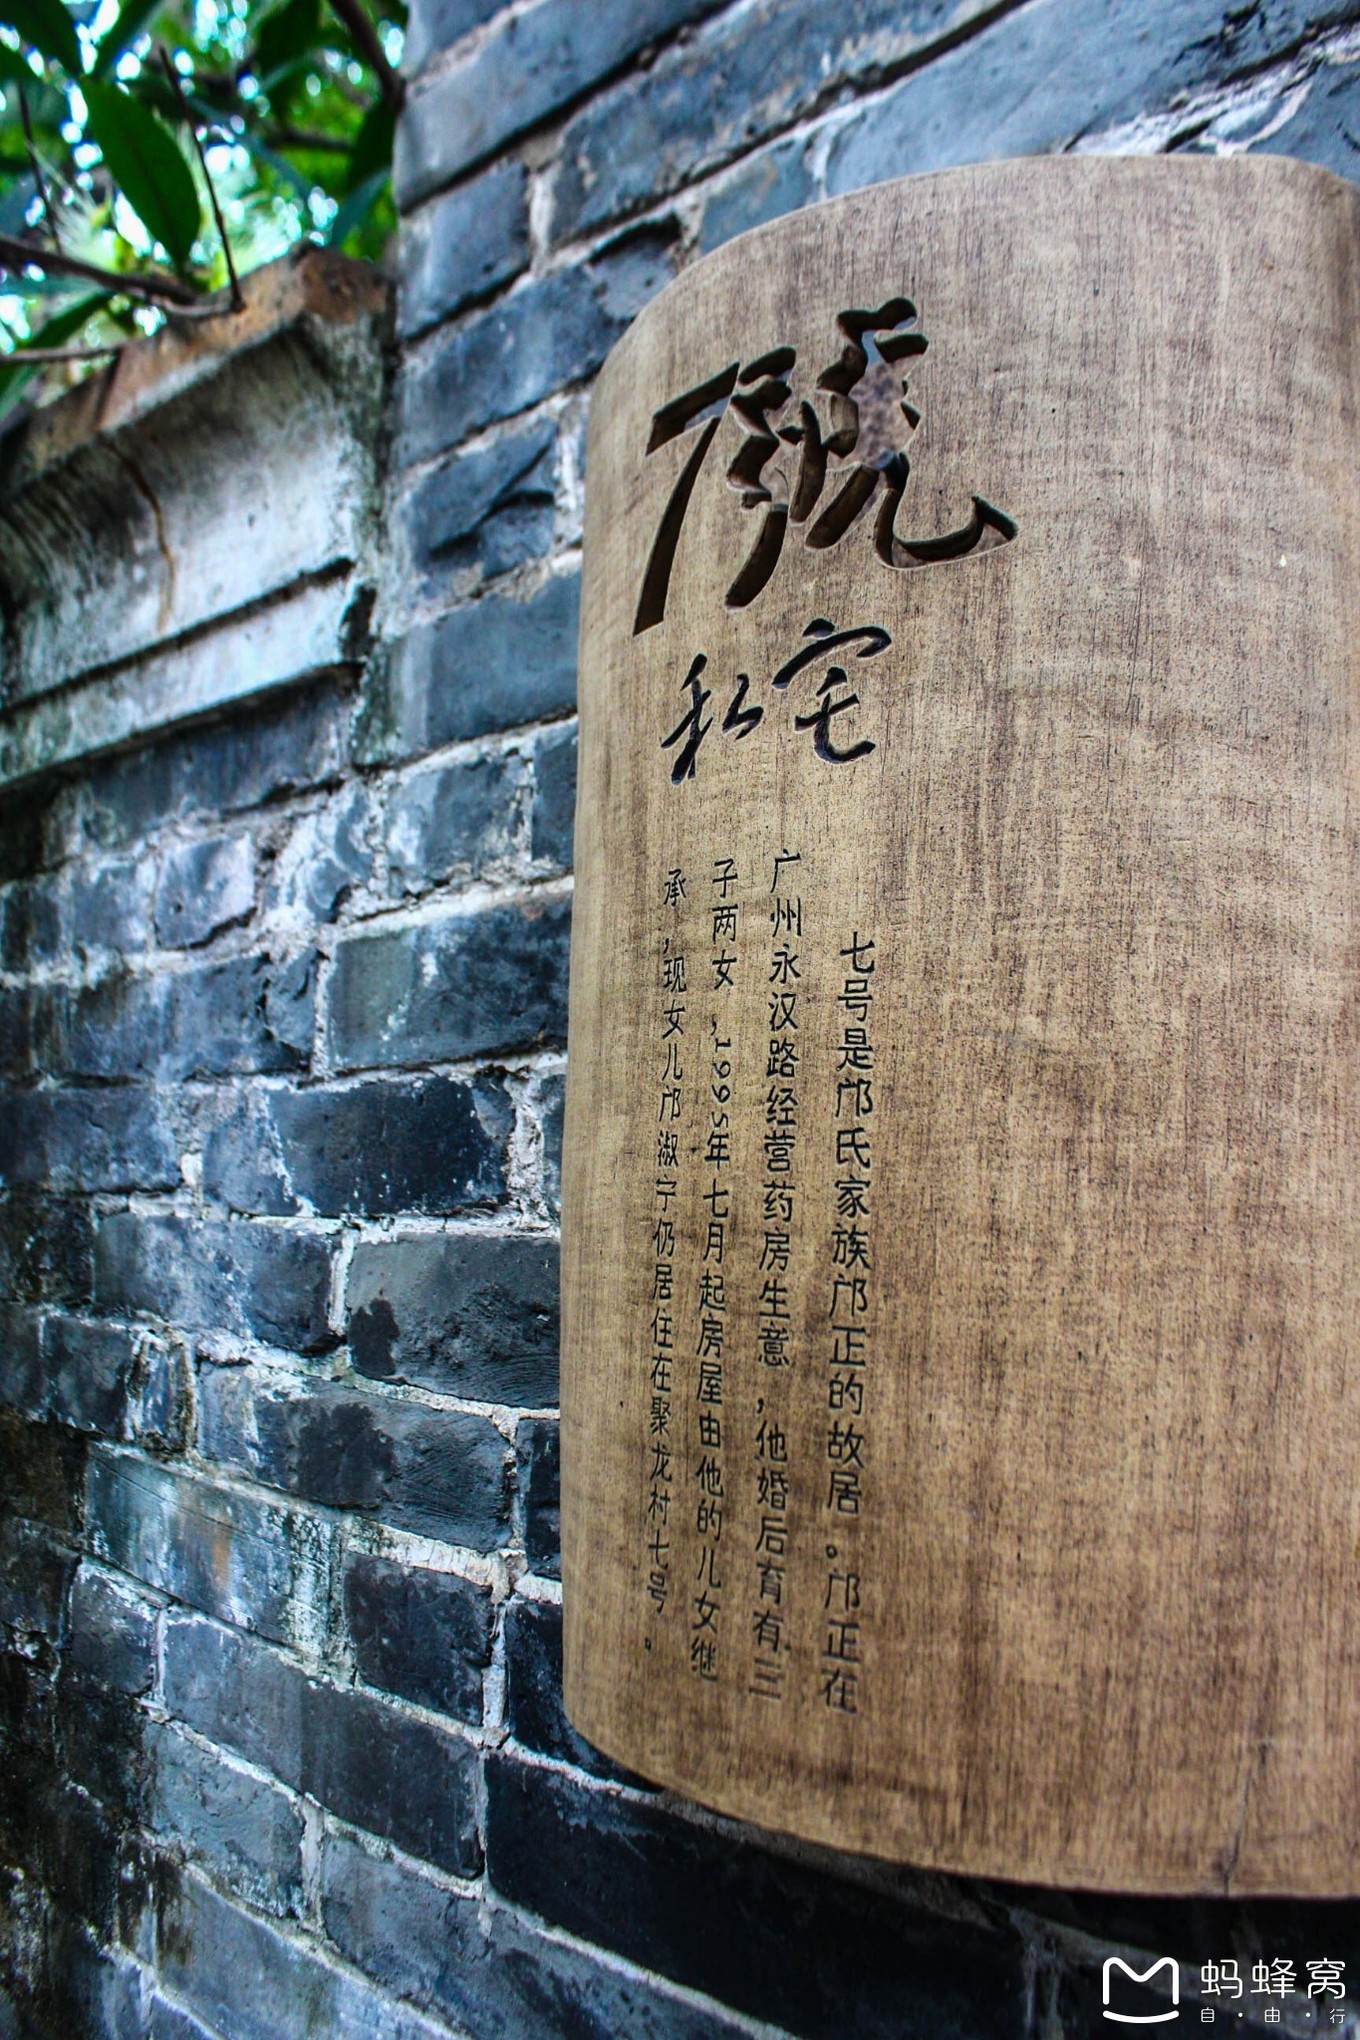 7號
私宅
七号是邝氏家族邝正的故居。邝正在
广州永汉路经营药房生意，他婚后育有三
子两女，1995年七月起房屋由他的儿女继
承，现女儿邝淑宁仍居住在聚龙村七号。
蚂蜂窝
自·由·行